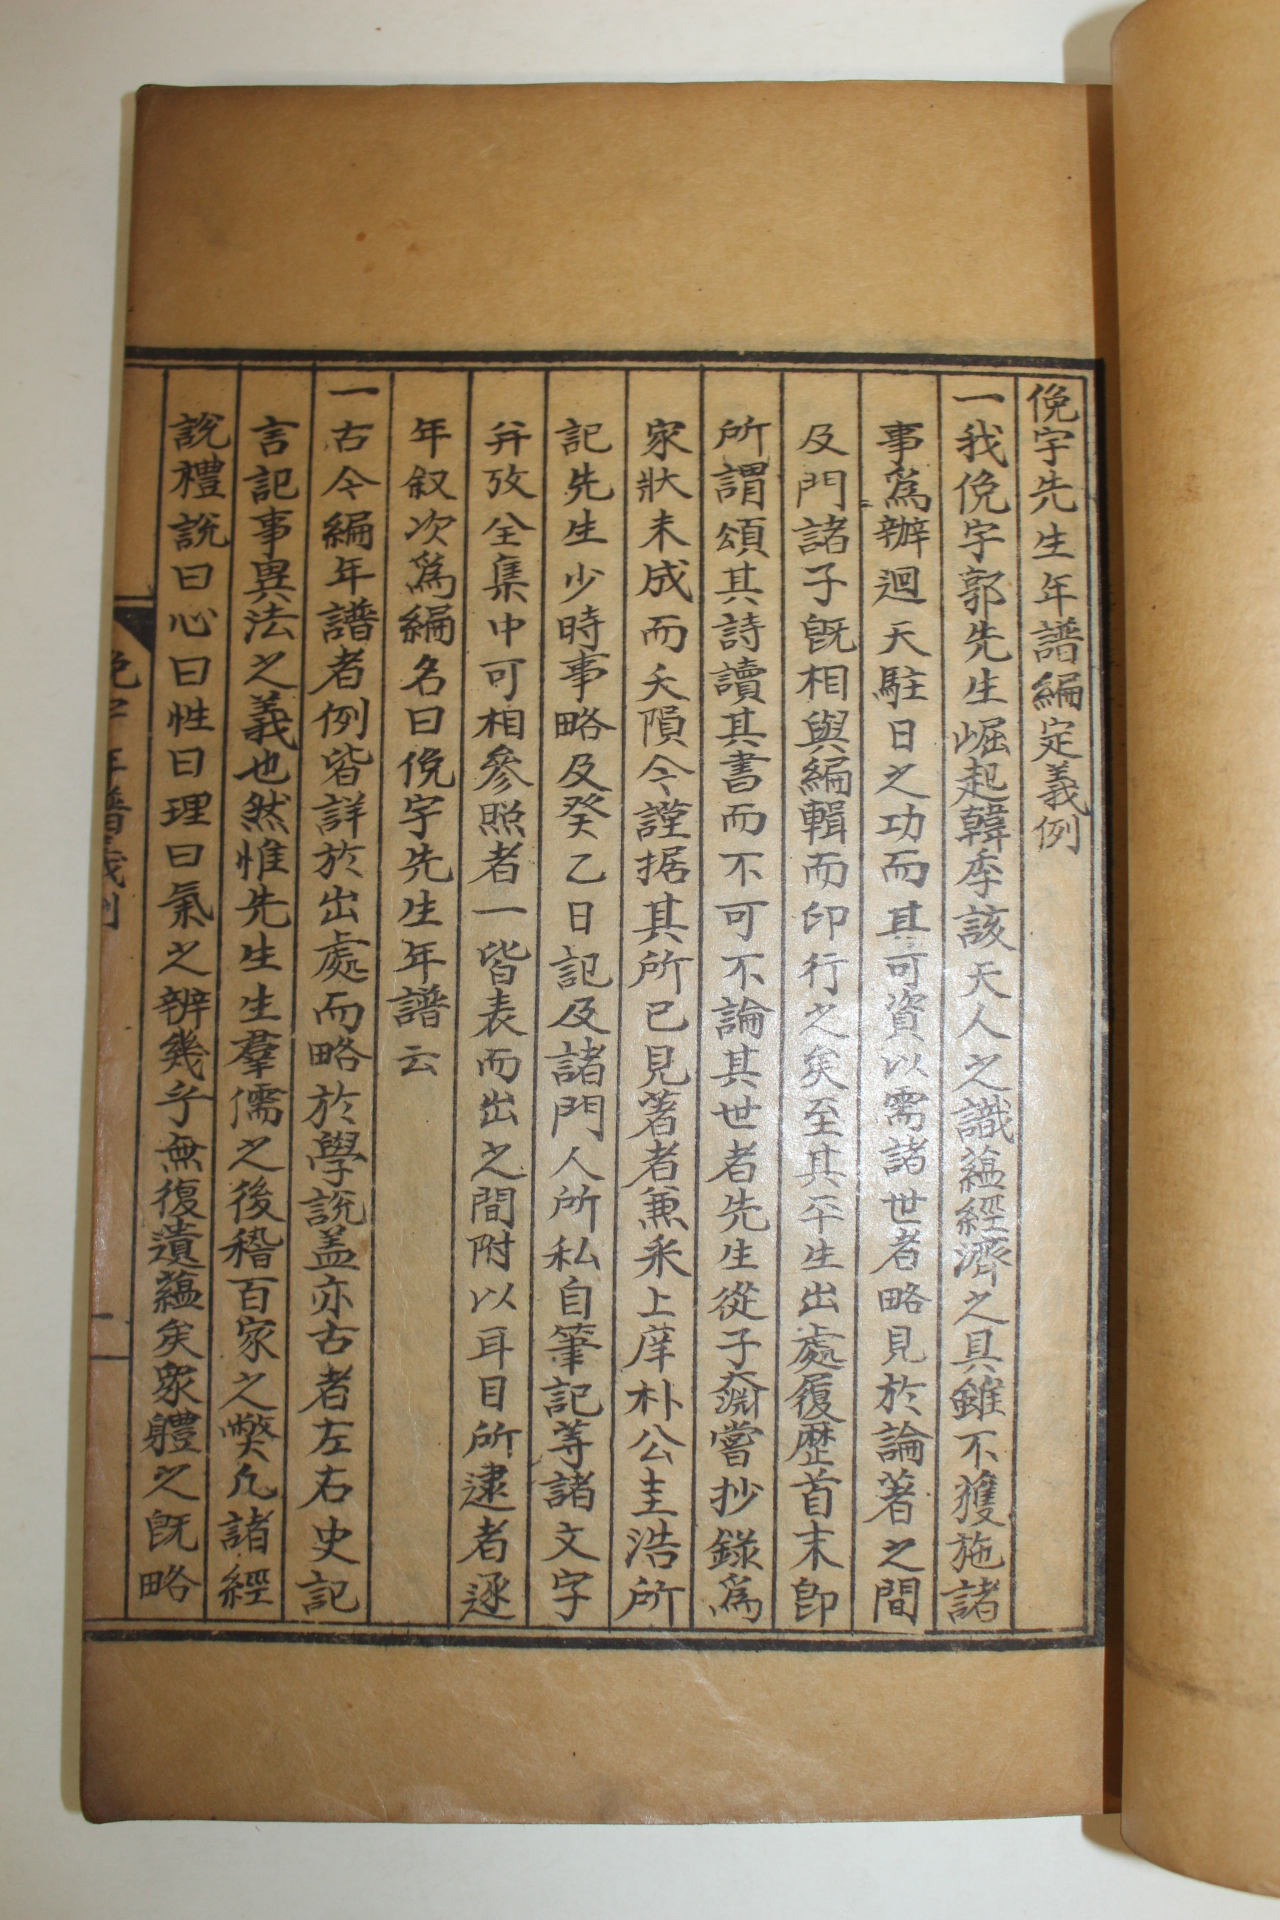 俛宇先生年譜編定義例
一我俛宇郭先生崛起韓季該天人之識蘊經濟之具雖不獲施諸
事爲辦迴天駐日之功而其可資以需諸世者略見於論著之間
及門諸子旣相與編輯而印行之矣至其平生出處履歷首末卽
所謂頌其詩讀其書而不可不論其世者先生從子奫嘗抄錄爲
家狀未成而夭隕今謹据其所已見著者兼采上庠朴公圭浩所
記先生少時事略及癸乙日記及諸門人所私自筆記等諸文字
幷攷全集中可相參照者一皆表而出之間附以耳目所逮者逐
年叙次爲編名曰俛宇先生年譜云
一古今編年譜者例皆詳於出處而略於學說盖亦古者左右史記
言記事異法之義也然惟先生生羣儒之後稽百家之獘凡諸經
說禮說曰心曰性曰理曰氣之辨幾乎無復遺蘊矣眾體之旣略
俛宇年譜義例
一